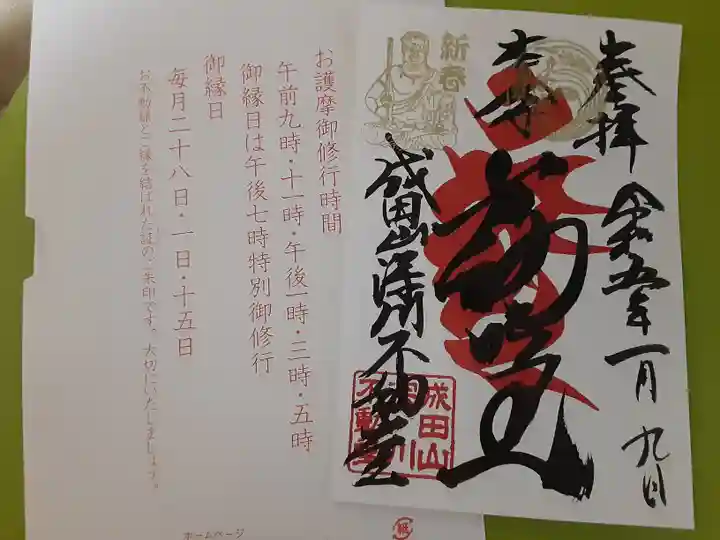 奉拝
令和五年一月九日
本尊
不動明王
成田山深川不動堂
新春
成田山
深川
不動堂
お護摩御修行時間
午前九時・十一時・午後一時・三時・五時
御縁日は午後七時特別御修行
御縁日
毎月二十八日・一日・十五日
お不動様とご縁を結ばれた証のご朱印です。大切にいたしましょう。
ホームページ